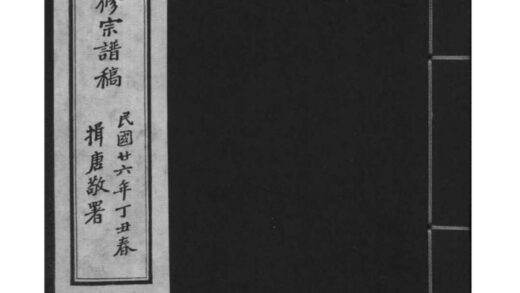 修宗譜稿
民國廿六年丁丑春
揖唐敬署